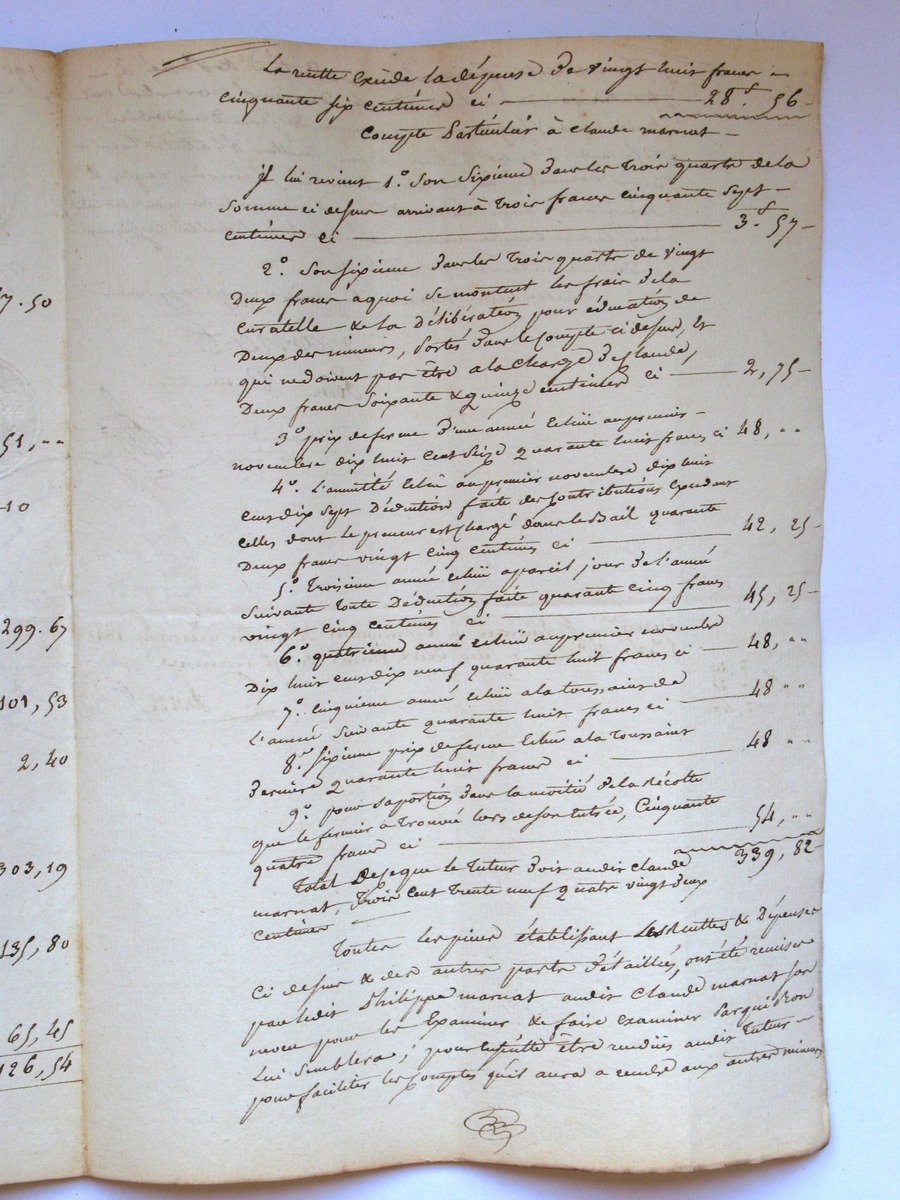 7.50
51, --
10
299.67
101,53
2,40
303,19
135,80
65,45
126,54
La recette excède la dépense de vingt huit francs
cinquante six centimes ci — 28.f 56
Compte Particulier à Claude marnat —
Il lui revient 1.o Son Sixieme dans les trois quarts de la
Somme ci dessus arrivant à trois francs cinquante Sept
centimes ci — 3.f 57
2.o Son Sixieme dans les trois quarts de vingt
Deux francs a quoi Se montent les frais de la
curatelle & la Délibération pour éducation de
Deux des mineurs, Portés dans le Compte ci dessus, Et
qui ne doivent pas être a la charge de Claude,
Deux francs Soixante & quinze centimes ci — 2,75
3.o prix de ferme d'une année Echüe au premier
novembre dix huit Cent Seize quarante huit francs ci 48, --
4.o L'annuité Echüe au premier novembre dix huit
cent dix Sept Déduction faite des Contributions Excédant
celles dont le preneur est chargé dans le Bail quarante
Deux francs vingt cinq centimes ci — 42, 25
5.o Troisieme année Echüe a pareil jour de l'année
Suivante toute Déduction faite quarante cinq francs
vingt cinq centimes ci — 45, 25
6.o quatrieme année Echüe au premier novembre
Dix huit cent dix neuf quarante huit francs ci — 48, --
7.o Cinquieme année Echüe a la toussaint de
L'année Suivante quarante huit francs ci — 48 --
8.o Sixieme prix de ferme Echu a la Toussaint
Derniere quarante huit francs ci — 48 --
9.o pour Sa portion dans la moitié de la Récolte
que le fermier a trouvée lors de son Entrée, Cinquante
quatre francs ci — 54, --
Total De ce que le tuteur doit audit Claude 339, 82
marnat, Trois cent trente neuf quatre vingt deux
centimes —
Toutes les pieces établissant Les Recettes & Dépenses
Ci dessus & des autres parts Détaillées, ont été remises
par ledit Philippe marnat audit Claude marnat Son
neveu pour les Examiner & faire Examiner Par qui Bon
Lui Semblera; pour Ensuite être rendües audit tuteur
pour faciliter les Comptes qu'il aura a rendre aux autres mineurs